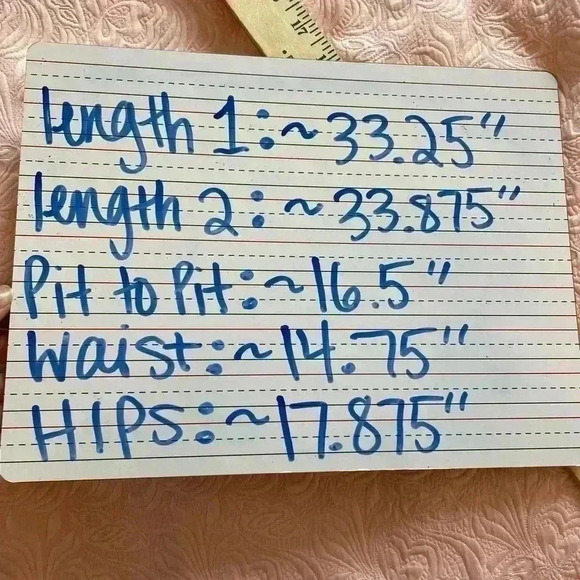 length 1: ~33.25"
length 2: ~33.875"
Pit to Pit: ~16.5"
Waist: ~14.75"
HIPS: ~17.875"